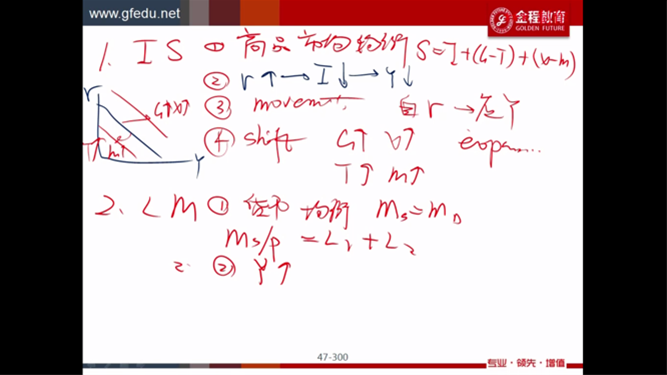 www.gfedu.net
金程教育
GOLDEN FUTURE
1. IS ① 商品市场均衡 S=I+(G-T)+(X-M)
② r↑→I↓→Y↓
③ movement 自 r → Y
④ shift G↑ X↑ expan......
T↑ m↑
r
G↑X↑
T↑ m↑
Y
2. LM ① 货币 均衡 Ms=MD
Ms/p = L1+L2
2. ② Y↑
47-300
专业·领先·增值